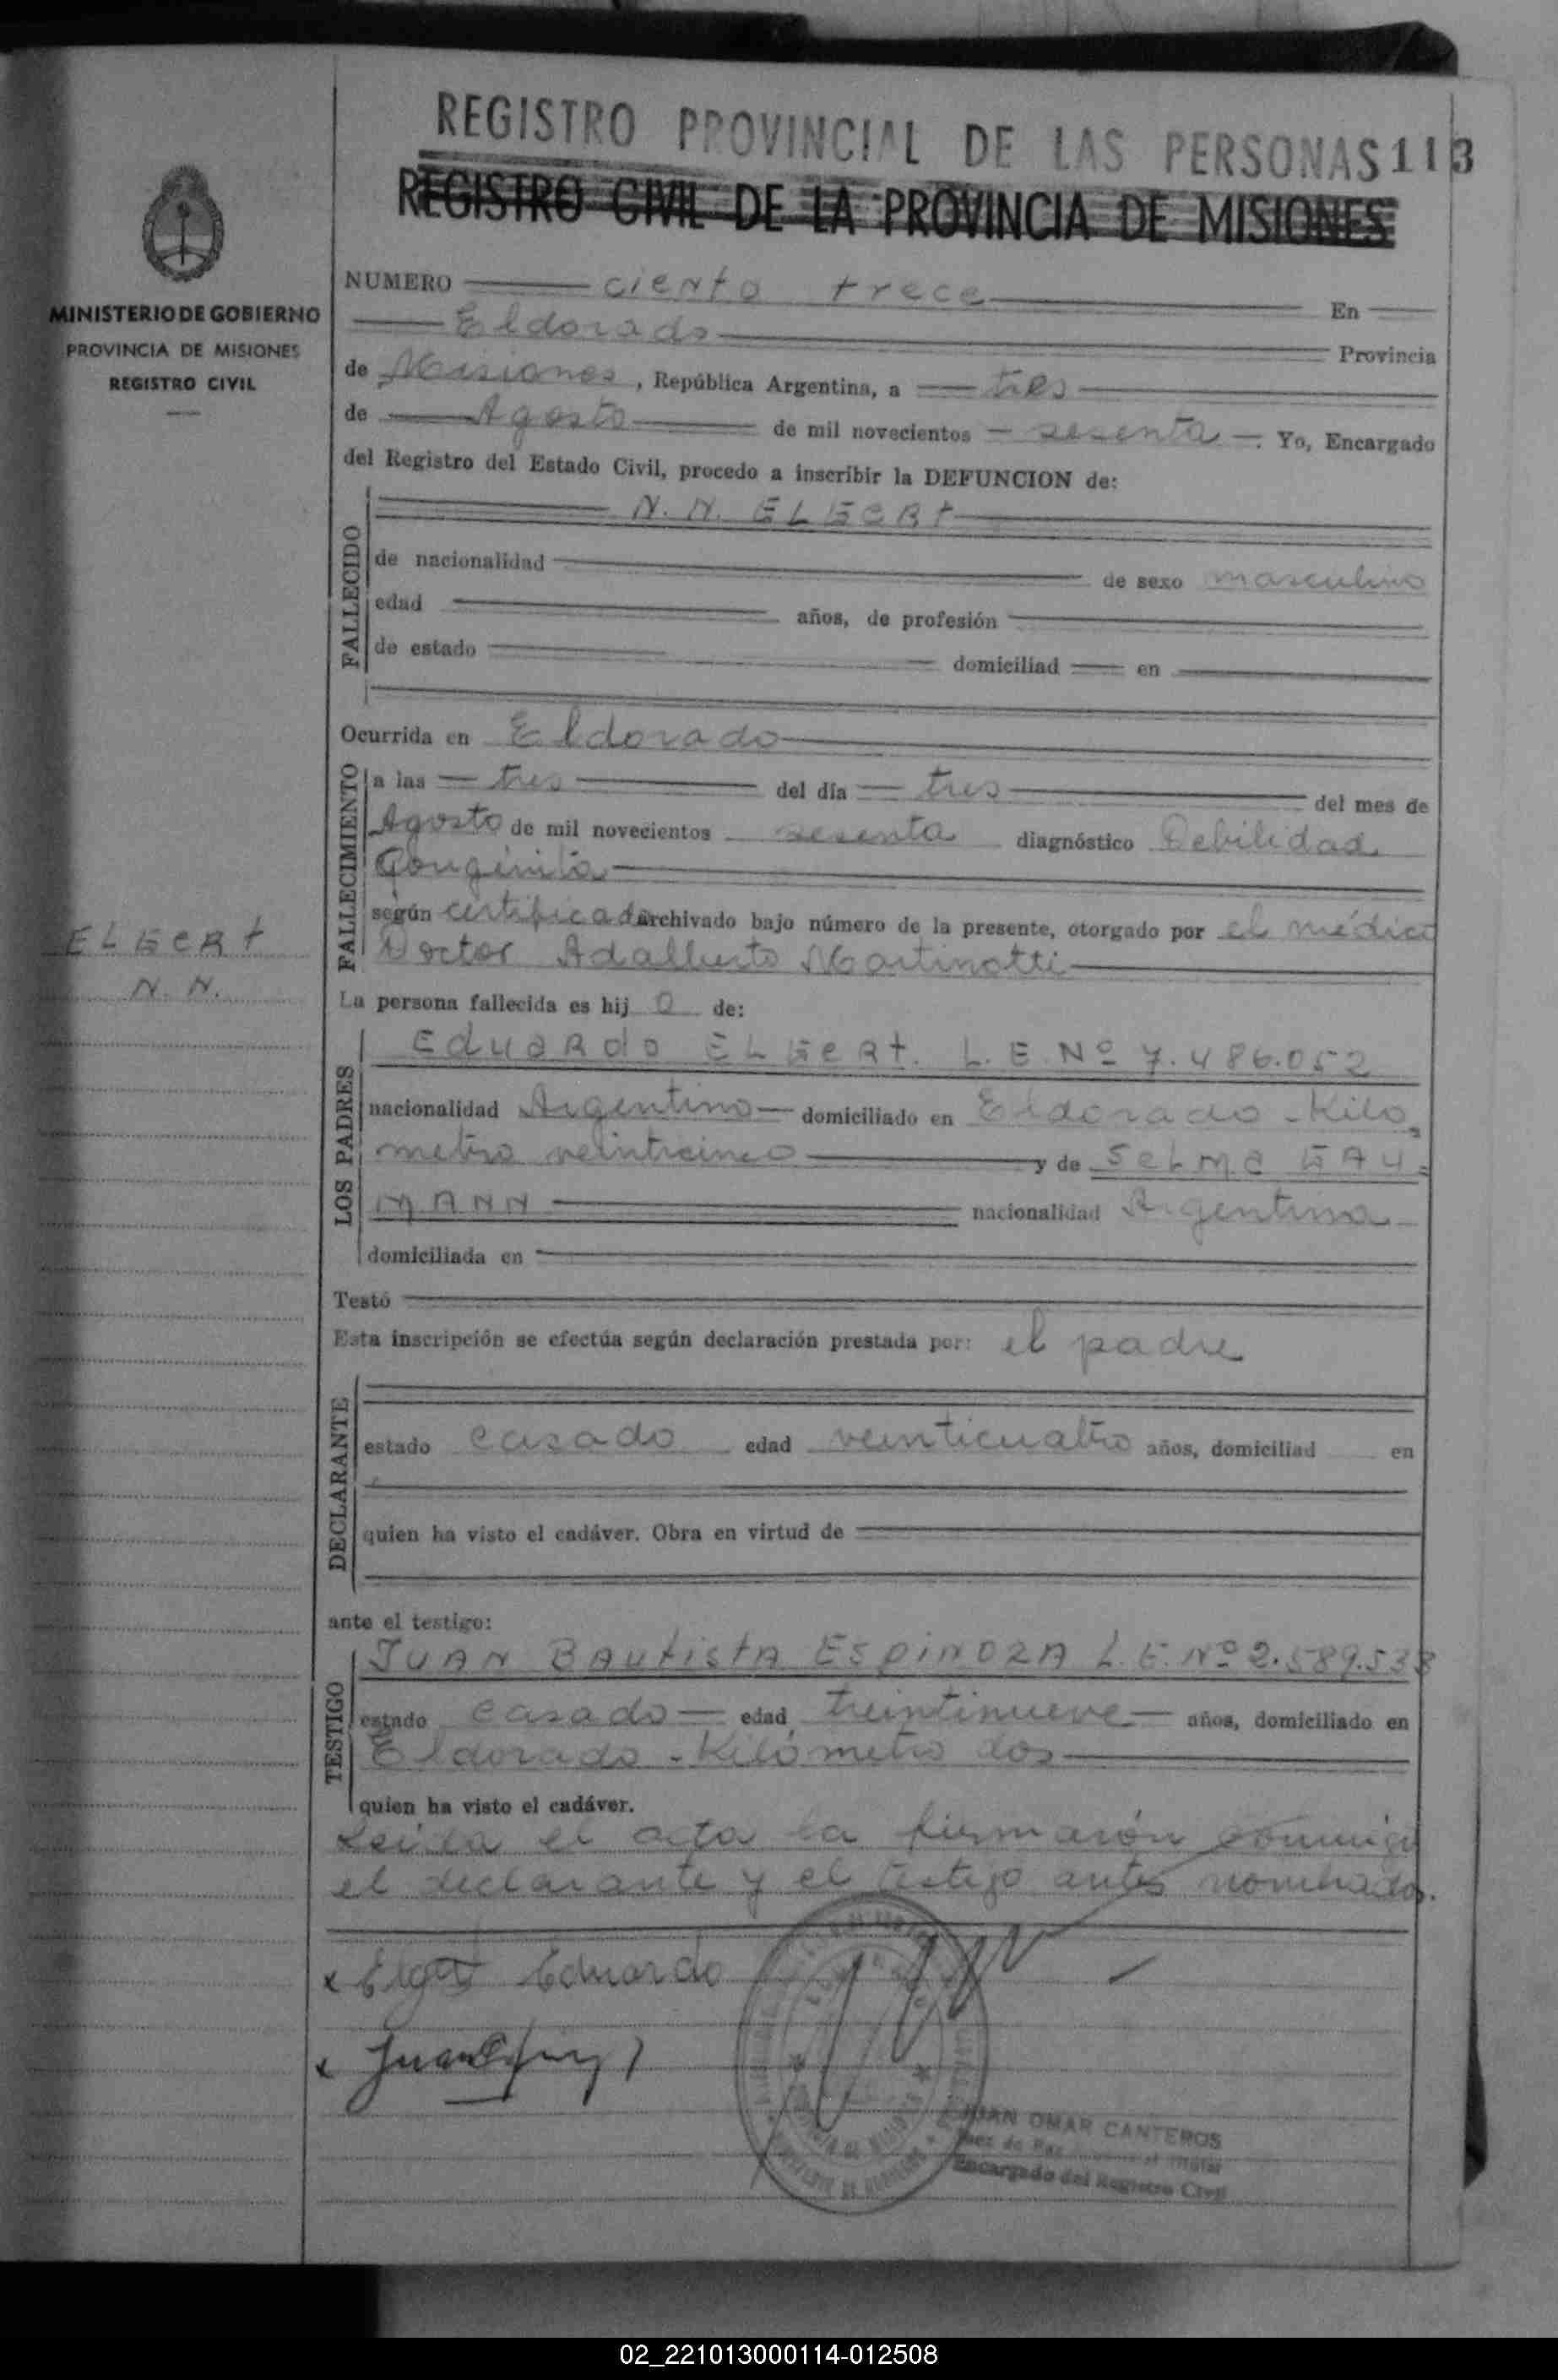 REGISTRO PROVINCIAL DE LAS PERSONAS 113
REGISTRO CIVIL DE LA PROVINCIA DE MISIONES
MINISTERIO DE GOBIERNO
PROVINCIA DE MISIONES
REGISTRO CIVIL
NUMERO ciento trece En
Eldorado Provincia
de Misiones, República Argentina, a tres
de Agosto de mil novecientos sesenta. Yo, Encargado
del Registro del Estado Civil, procedo a inscribir la DEFUNCION de:
N. N. ELGERT
FALLECIDO
de nacionalidad de sexo masculino
edad años, de profesión
de estado domiciliad en
Ocurrida en Eldorado
FALLECIMIENTO
a las tres del día tres del mes de
Agosto de mil novecientos sesenta diagnóstico Debilidad
Congénita
según certificado archivado bajo número de la presente, otorgado por el médico
Doctor Adalberto Martinotti
ELGERT
N. N.
La persona fallecida es hijo de:
LOS PADRES
Eduardo ELGERT. L. E. Nº 7.486.052
nacionalidad Argentino domiciliado en Eldorado - Kiló
metro veinticinco y de Selma GAU=
MANN nacionalidad Argentina
domiciliada en
Testó
Esta inscripción se efectúa según declaración prestada por: el padre
DECLARANTE
estado casado edad veinticuatro años, domiciliad en
quien ha visto el cadáver. Obra en virtud de
ante el testigo:
TESTIGO
JUAN BAUTISTA ESPINOZA L. E. Nº 2.589.538
estado casado edad treintinueve años, domiciliado en
Eldorado - Kilómetro dos
quien ha visto el cadáver.
Leída el acta la firmarón conmigo
el declarante y el testigo antes nombrados.
x Elgert Eduardo
x Juan
JUAN OMAR CANTEROS
Juez de Paz
Encargado del Registro Civil
02_221013000114-012508